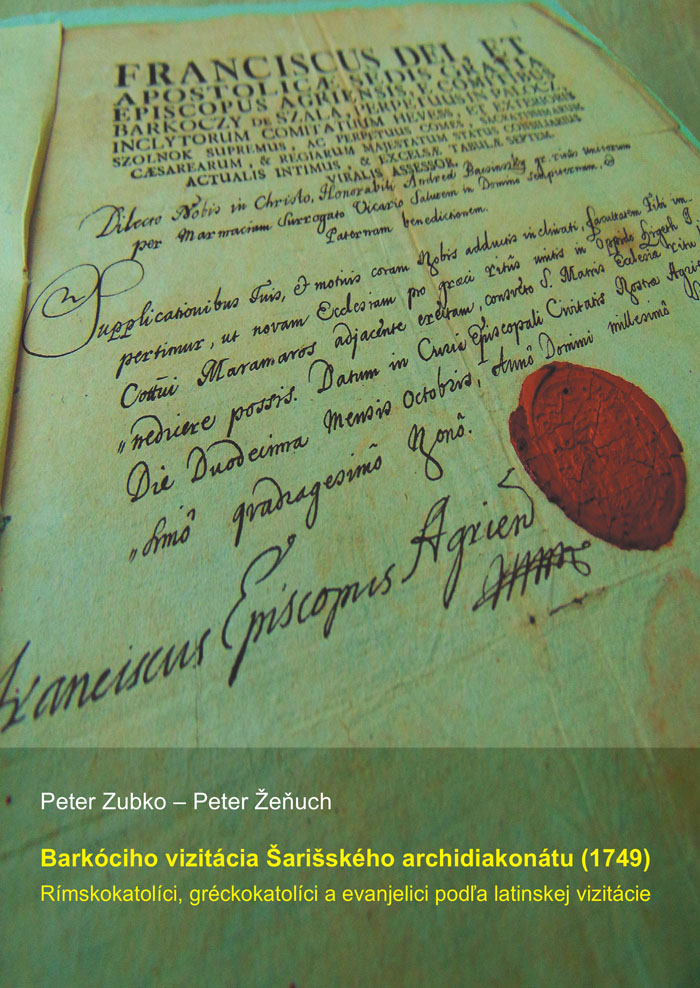 FRANCISCUS DEI, ET
APOSTOLICÆ SEDIS GRATIA
EPISCOPUS AGRIENSIS, E COMITIBUS
BARKOCZY DE SZALA, PERPETUUS IN PALOCZ,
INCLYTORUM COMITATUUM HEVESS, ET EXTERIORIS
SZOLNOK SUPREMUS, AC PERPETUUS COMES, SACRATISSIMARUM
CÆSAREARUM, & REGIARUM MAJESTATUM STATUS CONSILIARIUS
ACTUALIS INTIMUS, & EXCELSÆ TABULÆ SEPTEM-
VIRALIS ASSESSOR.
Dilecto Nobis in Christo, Honorabili Andreæ Bacsinszky gr. ritûs Unitorum
per Marmaciam Surrogato Vicario Salutem in Domino sempiternam, &
Paternam benedictionem.
Supplicationibus Tuis, & motivis coram Nobis adductis inclinati, facultatem Tibi im-
pertimur, ut novam Ecclesiam pro græci ritûs unitis in Oppido
Cottui Maramaros adjacente erectam, consveto S. Matris Ecclesiæ ritu
possis. Datum in Curia Episcopali Civitatis Nostræ
Die Duodecima Mensis Octobris, Annô Domini millesimô
quadragesimô Nonô.
Franciscus Episcopus Agrien
Peter Zubko – Peter Žeňuch
Barkóciho vizitácia Šarišského archidiakonátu (1749)
Rímskokatolíci, gréckokatolíci a evanjelici podľa latinskej vizitácie